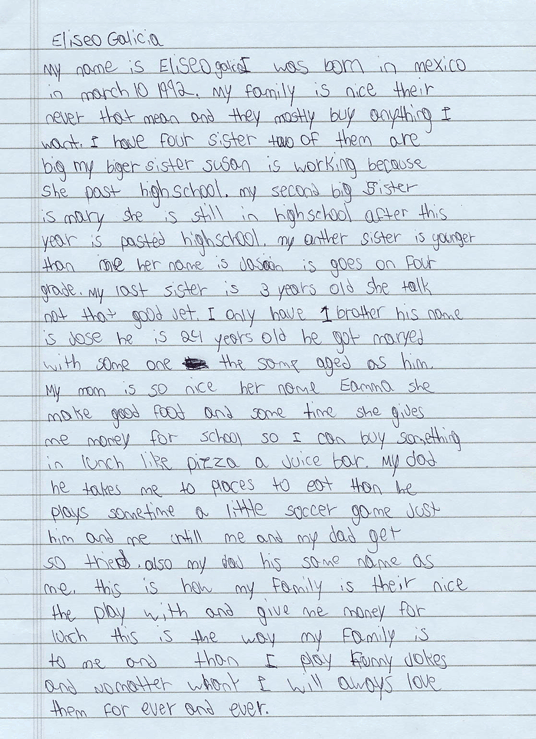 Eliseo Galicia
My name is Eliseo galicia I was born in mexico
in march 10 1992. My family is nice their
never that mean and they mostly buy anything I
want. I have four sister two of them are
big my biger sister susan is working because
she past highschool. my second big sister
is mary she is still in highschool after this
year is pasted highschool. my anther sister is younger
than me her name is is goes on four
grade. My last sister is 3 years old she talk
not that good jet. I only have 1 brother his name
is Jose he is 24 years old he got maryed
with some one the same aged as him.
My mom is so nice her name Eamma she
make good food and some time she gides
me money for school so I can buy something
in lunch like pizza a juice bar. My dad
he takes me to places to eat than he
plays sometime a little soccer game Just
him and me until me and my dad get
so also my dad his same name as
me. this is how my Family is their nice
the play with and give me money for
luch this is the way my Family is
to me and than I play Funny Jokes
and nomatter whant I will always love
them for ever and ever.